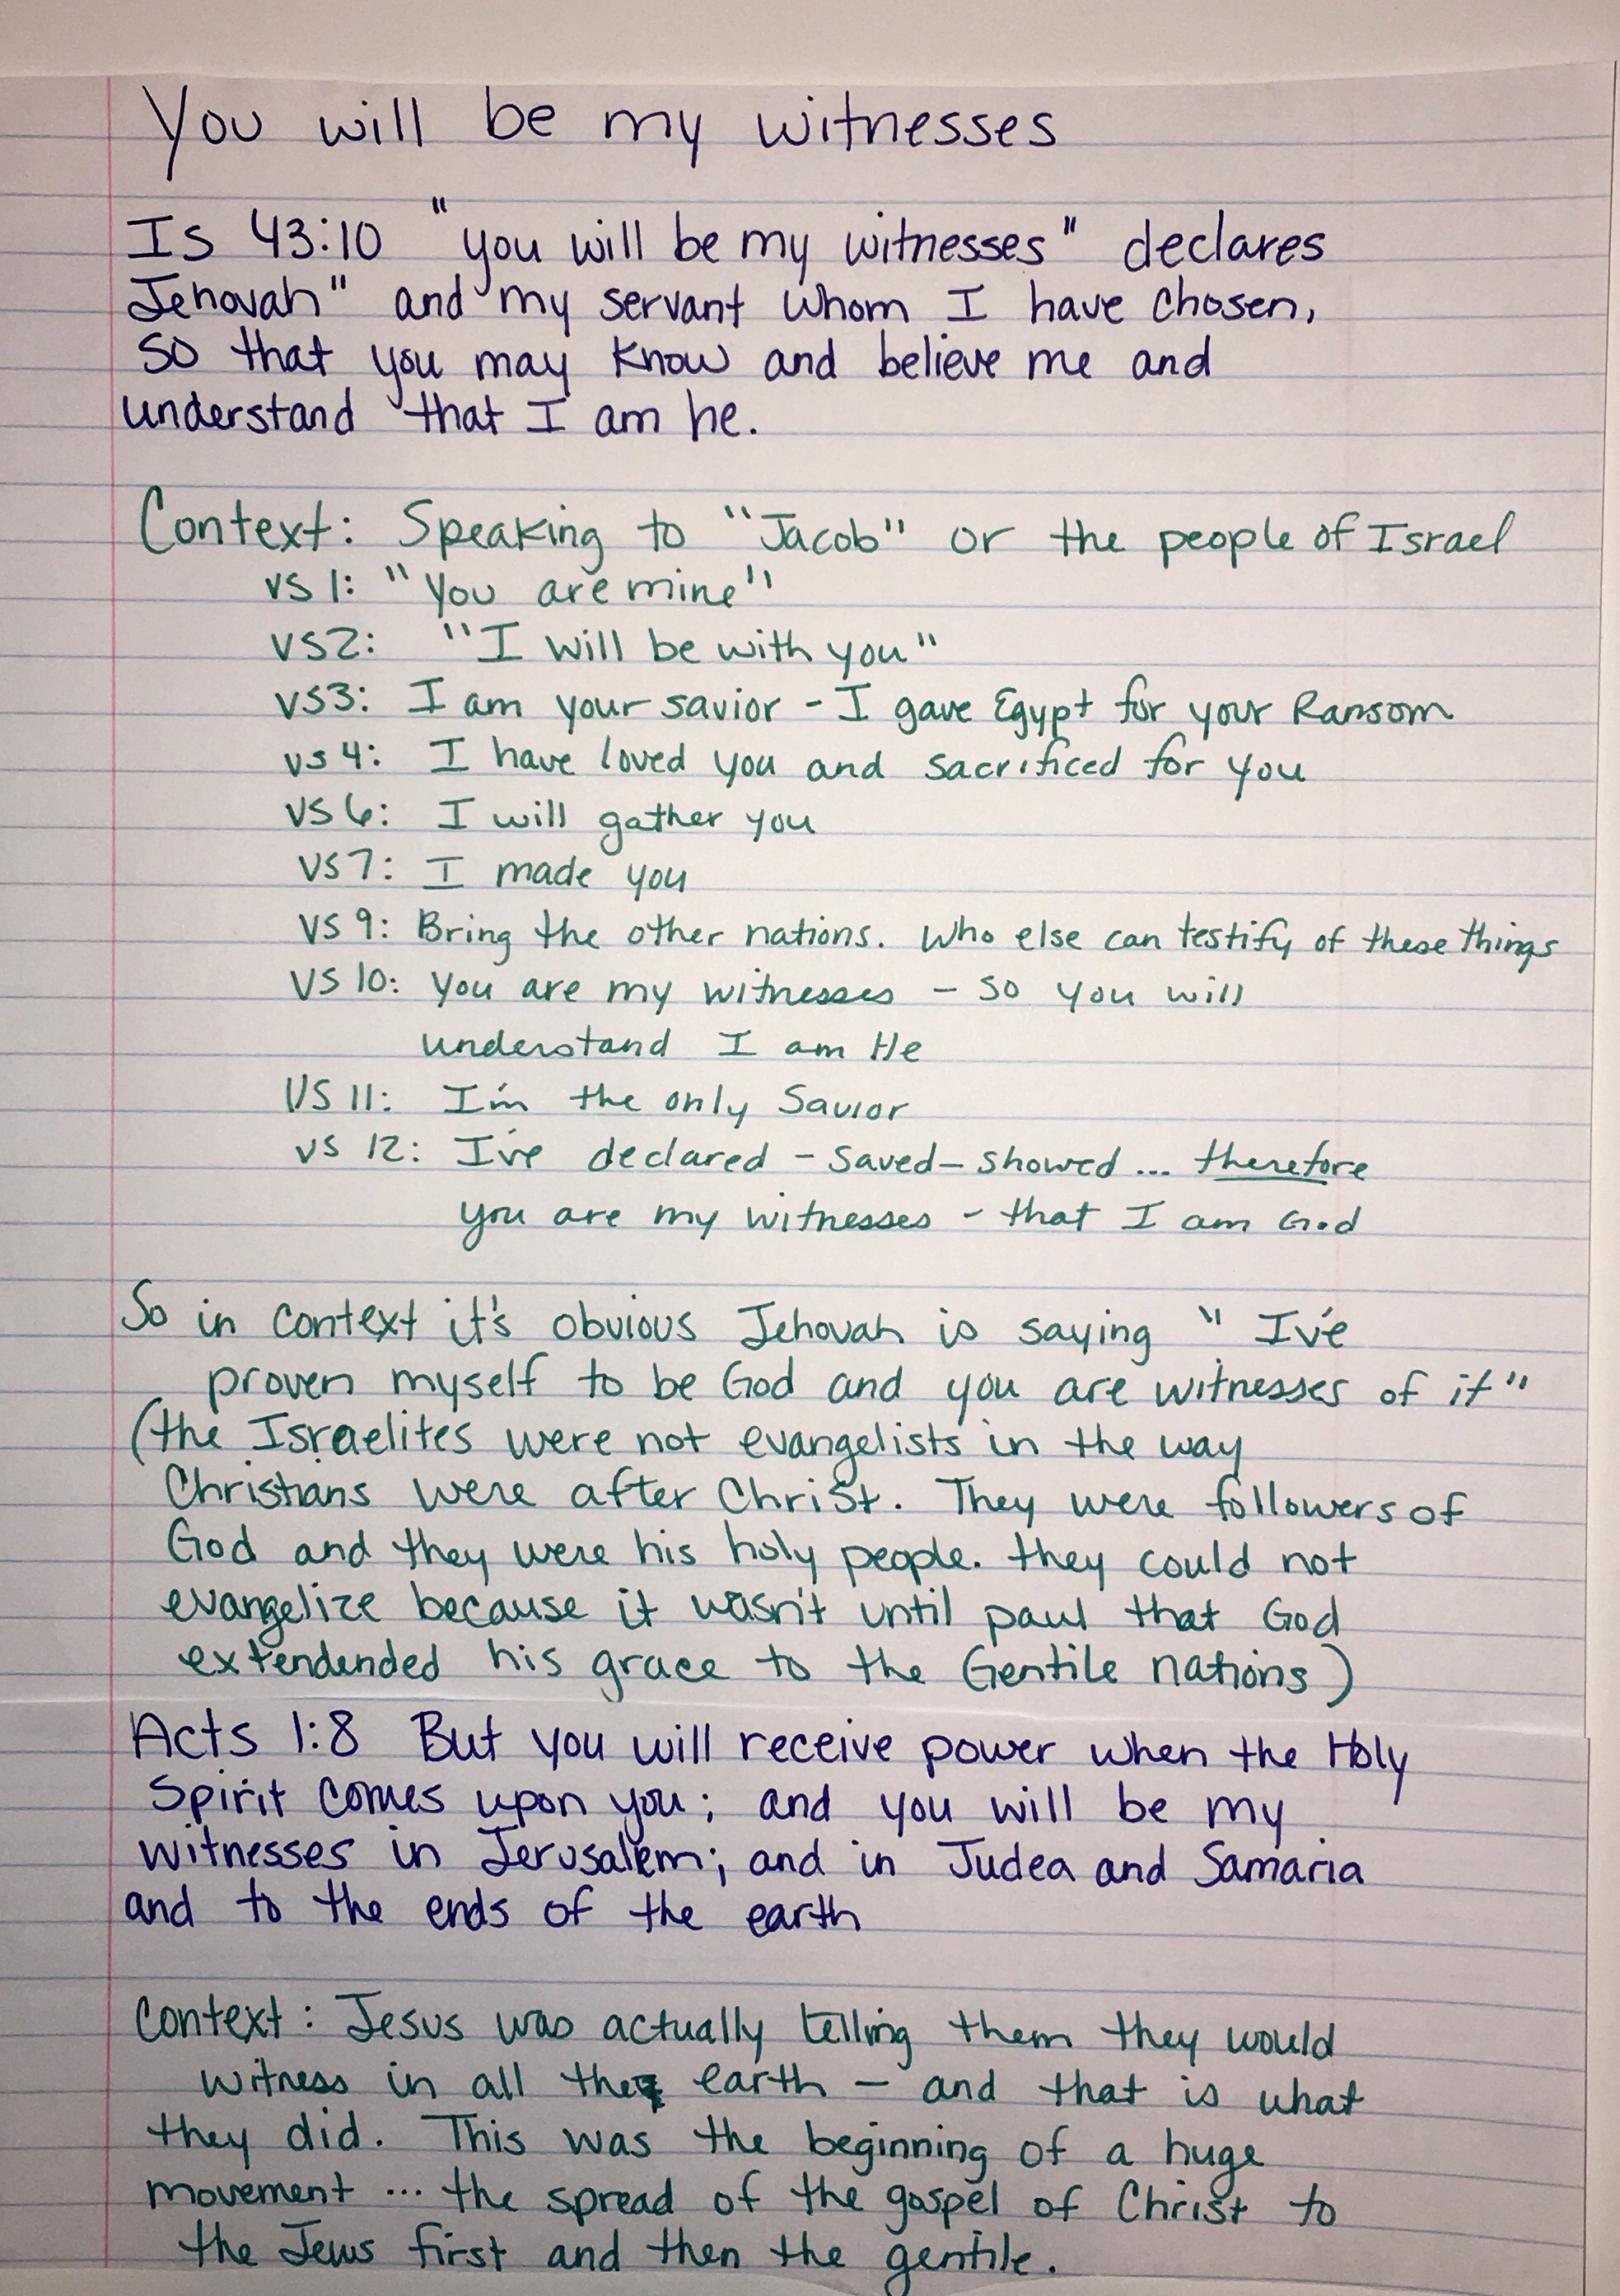 You will be my witnesses
Is 43:10 "you will be my witnesses" declares
Jehovah" and my servant whom I have chosen,
so that you may know and believe me and
understand that I am he.
Context: Speaking to "Jacob" or the people of Israel
vs 1: "You are mine"
vs2: "I will be with you"
vs3: I am your savior - I gave Egypt for your Ransom
vs 4: I have loved you and sacrificed for you
vs 6: I will gather you
vs 7: I made you
vs 9: Bring the other nations. Who else can testify of these things
vs 10: You are my witnesses - so you will
understand I am He
vs 11: I'm the only Savior
vs 12: I've declared - saved - showed ... therefore
you are my witnesses - that I am God
So in context it's obvious Jehovah is saying " I've
proven myself to be God and you are witnesses of it"
(the Israelites were not evangelists in the way
Christians were after Christ. They were followers of
God and they were his holy people. they could not
evangelize because it wasn't until paul that God
extendended his grace to the Gentile nations)
Acts 1:8 But you will receive power when the Holy
Spirit comes upon you; and you will be my
witnesses in Jerusalem; and in Judea and Samaria
and to the ends of the earth
Context: Jesus was actually telling them they would
witness in all the earth - and that is what
they did. This was the beginning of a huge
movement ... the spread of the gospel of Christ to
the Jews first and then the gentile.